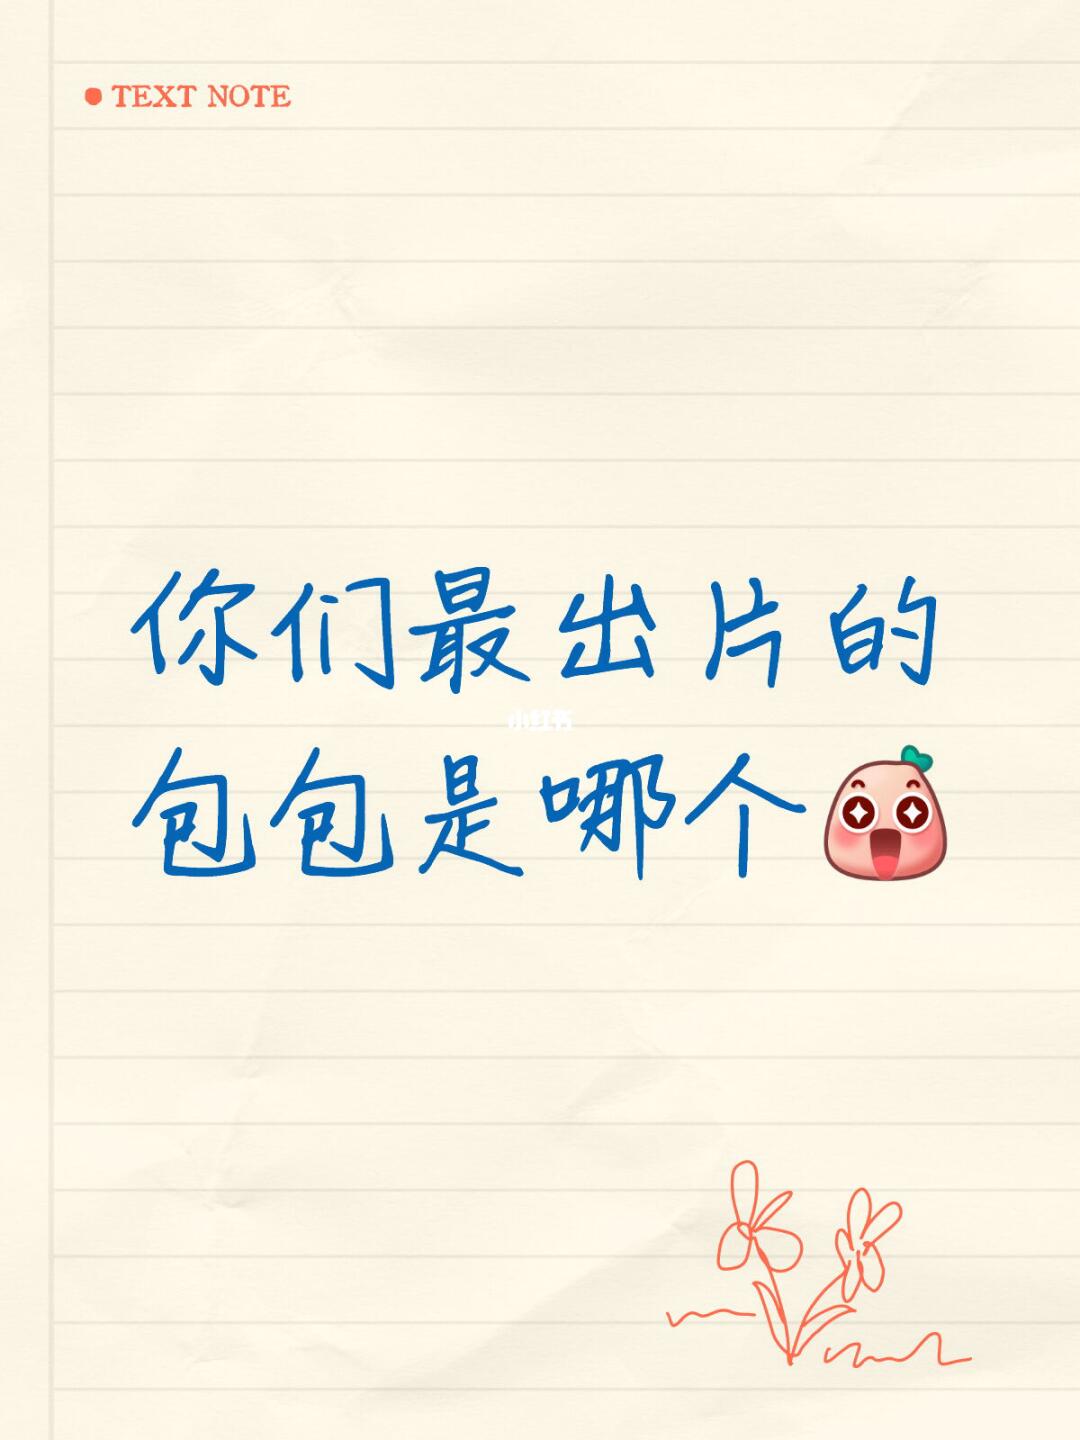 TEXT NOTE
你们最出片的
小红书
包包是哪个